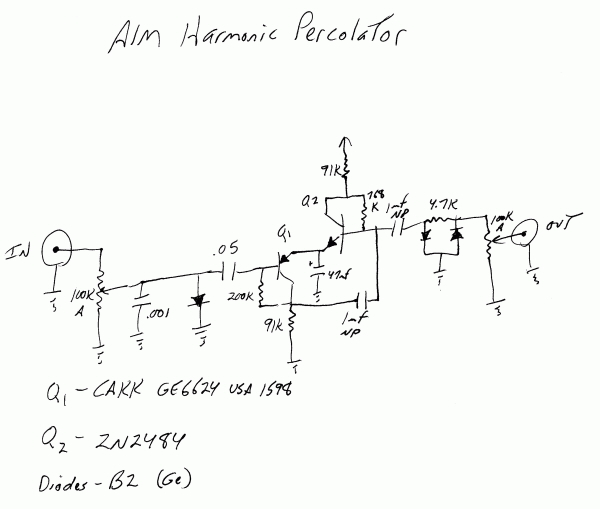 AIM Harmonic Percolator
91K
Q2
768 K
1mf NP
4.7K
100K A
OUT
IN
Q1
.05
+
47mf
100K A
.001
200K
91K
1mf NP
Q1 - CAKK GE6624 USA 1598
Q2 - 2N2484
Diodes - B2 (Ge)